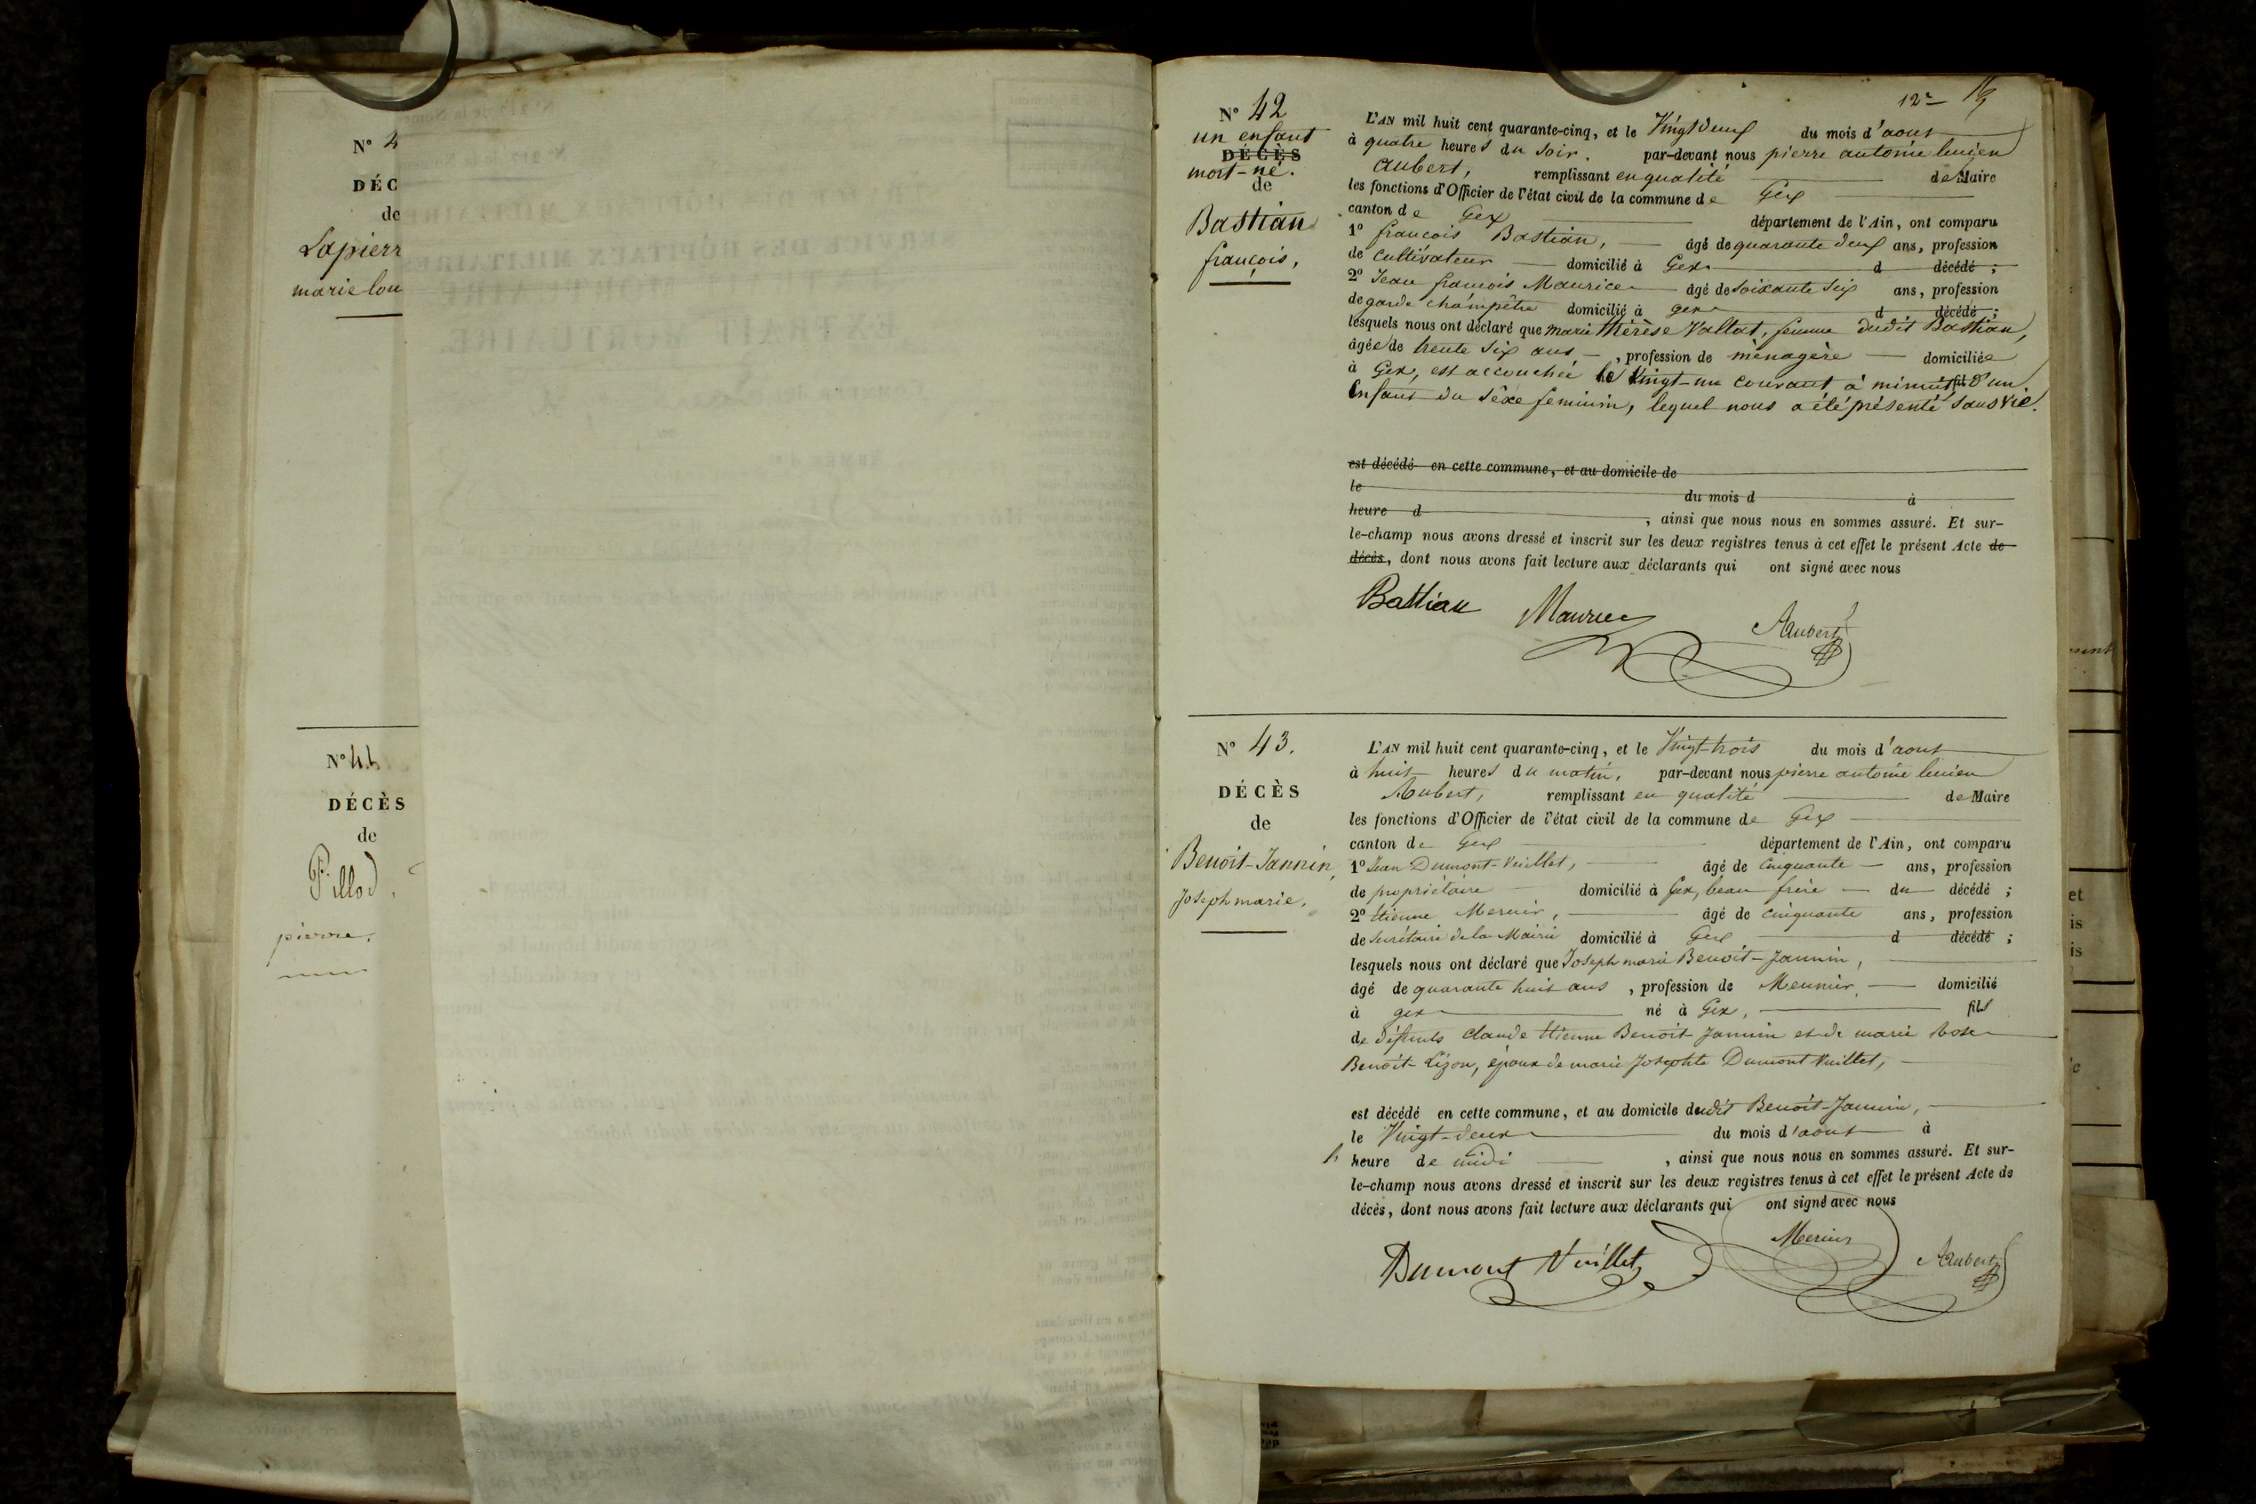 N° 4
DÉC
de
Lapierr
marie lou
DÉCÈS
de
Pillod,
pierre.
12e
N° 42
un enfant
DÉCÈS
mort-né.
de
Bastian
françois,
L'AN mil huit cent quarante-cinq, et le Vingt deux du mois d'aout
à quatre heures du soir. par-devant nous pierre antoine lucien
Aubert, remplissant en qualité de Maire
les fonctions d'Officier de l'état civil de la commune de Gex
canton de Gex département de l'Ain, ont comparu
1° françois Bastian, âgé de quarante deux ans, profession
de cultivateur domicilié à Gex d décédé ;
2° Jean françois Maurice âgé de soixante six ans, profession
de garde champêtre domicilié à gex d décédé ;
lesquels nous ont déclaré que marie thérèse Vallat, femme dudit Bastian,
âgée de trente six ans, profession de ménagère domiciliée
à Gex, est accouchée le vingt-un courant à minuit fil d'un
Enfant du sexe feminin, lequel nous a été présenté sans vie.
est décédé en cette commune, et au domicile de
le du mois d à
heure d , ainsi que nous nous en sommes assuré. Et sur-
le-champ nous avons dressé et inscrit sur les deux registres tenus à cet effet le présent Acte de
décès, dont nous avons fait lecture aux déclarants qui ont signé avec nous
Bastian Maurice Aubert
N° 43.
DÉCÈS
de
Benoit-Jannin,
Joseph marie.
L'AN mil huit cent quarante-cinq, et le Vingt-trois du mois d'aout
à huit heures du matin, par-devant nous pierre antoine lucien
Aubert, remplissant en qualité de Maire
les fonctions d'Officier de l'état civil de la commune de Gex
canton de Gex département de l'Ain, ont comparu
1° Jean Dumont-Vuillet, âgé de cinquante ans, profession
de propriétaire domicilié à Gex, beau frère du décédé ;
2° Etienne Mercier, âgé de cinquante ans, profession
de secrétaire de la Mairie domicilié à Gex d décédé ;
lesquels nous ont déclaré que Joseph marie Benoit-Jannin,
âgé de quarante huit ans, profession de Meunier, domicilié
à gex né à Gex, fils
de défunts Claude Etienne Benoit Jannin et de marie Rose
Benoit-Lizon, époux de marie Josephte Dumont Vuillet,
est décédé en cette commune, et au domicile dudit Benoit-Jannin,
le Vingt-deux du mois d'aout à
l' heure de midi , ainsi que nous nous en sommes assuré. Et sur-
le-champ nous avons dressé et inscrit sur les deux registres tenus à cet effet le présent Acte de
décès, dont nous avons fait lecture aux déclarants qui ont signé avec nous
Dumont Vuillet Mercier Aubert
et
is
is